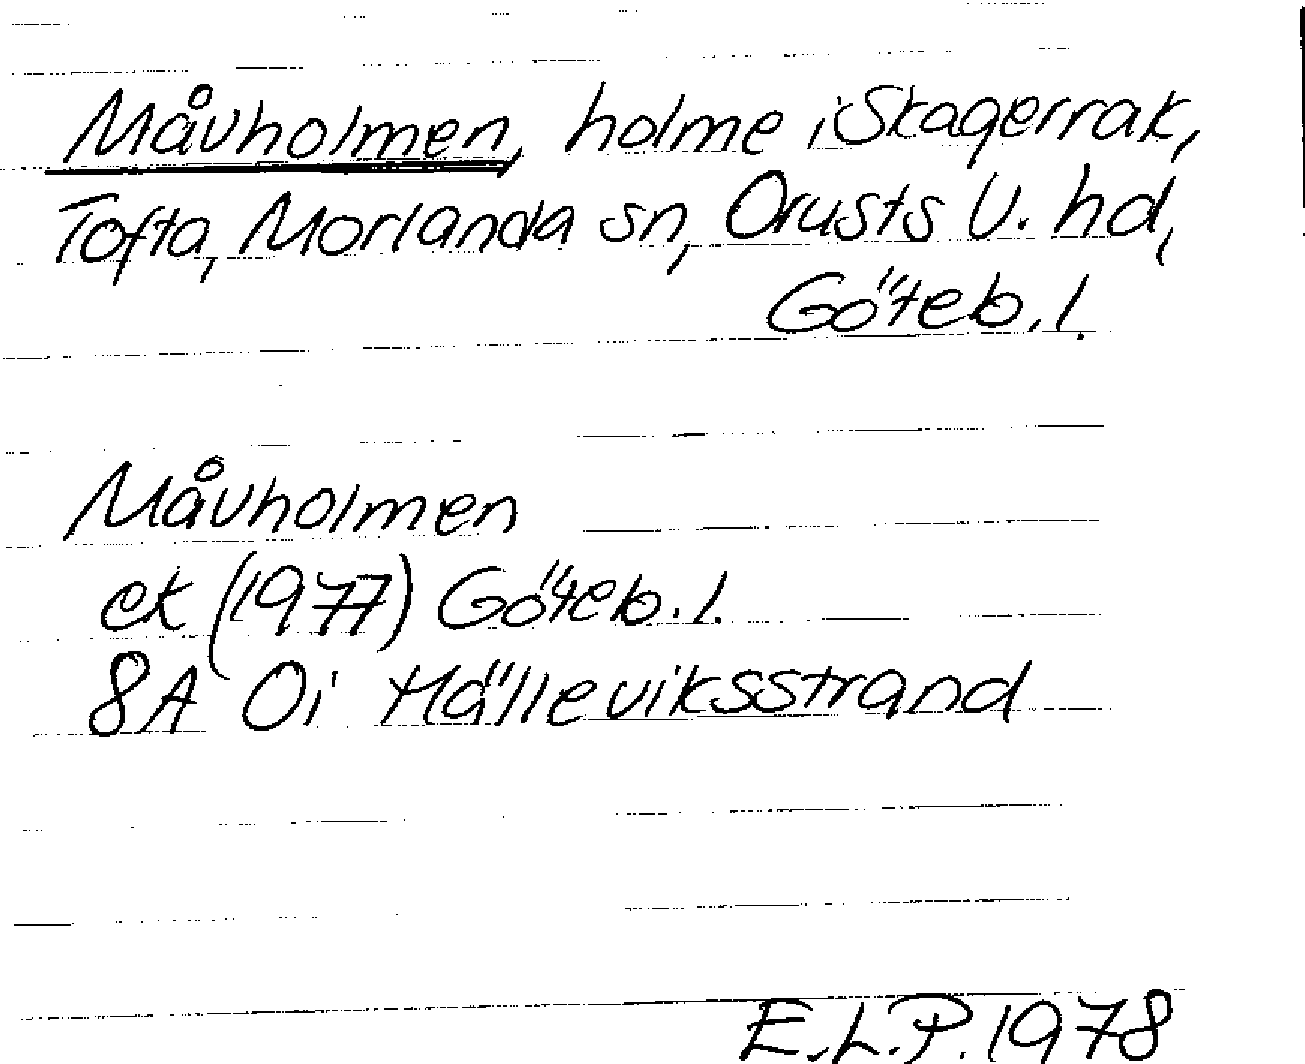 Måvholmen, holme i Skagerrak,
Tofta, Morlanda sn, Orusts V. hd,
Göteb. l.
Måvholmen
ek (1977) Göteb. l.
8A 0i Hälleviksstrand
E.L.P. 1978